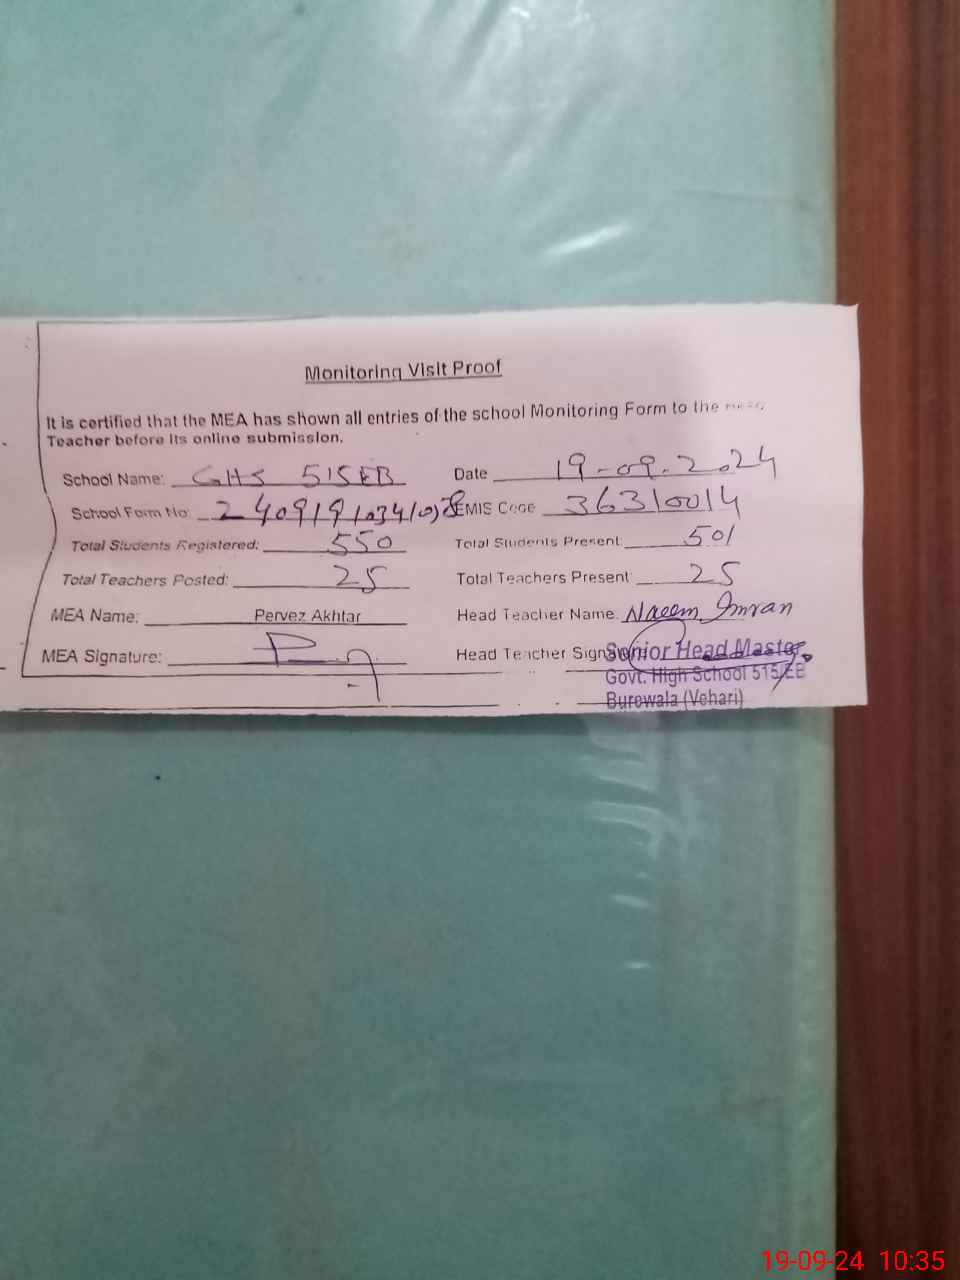 Monitoring Visit Proof
It is certified that the MEA has shown all entries of the school Monitoring Form to the
Teacher before its online submission.
School Name: GHS 515EB Date 19-09-2024
School Form No: EMIS Code 36310014
Total Students Registered: 550 Total Students Present: 501
Total Teachers Posted: 25 Total Teachers Present: 25
MEA Name: Pervez Akhtar Head Teacher Name: Naeem Imran
MEA Signature: Head Teacher
Senior Head Master
Govt. High School 515/EB
Burewala (Vehari)
19-09-24 10:35